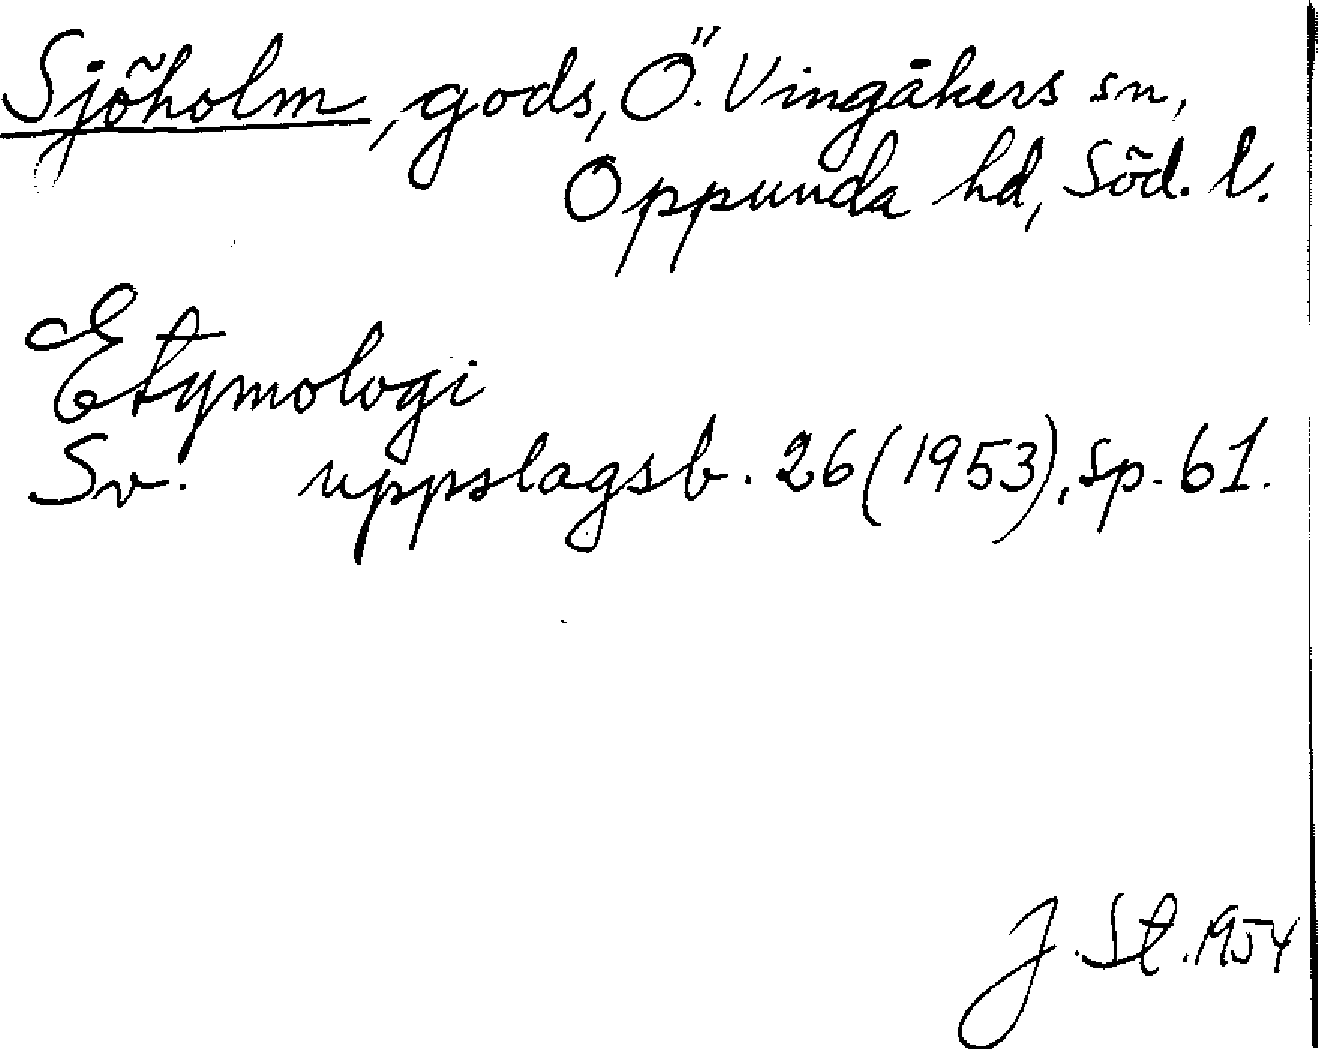 Sjöholm, gods, Ö. Vingåkers sn,
Oppunda hd, Söd. l.
Etymologi
Sv. uppslagsb. 26 (1953), sp. 61.
J. St. 1954